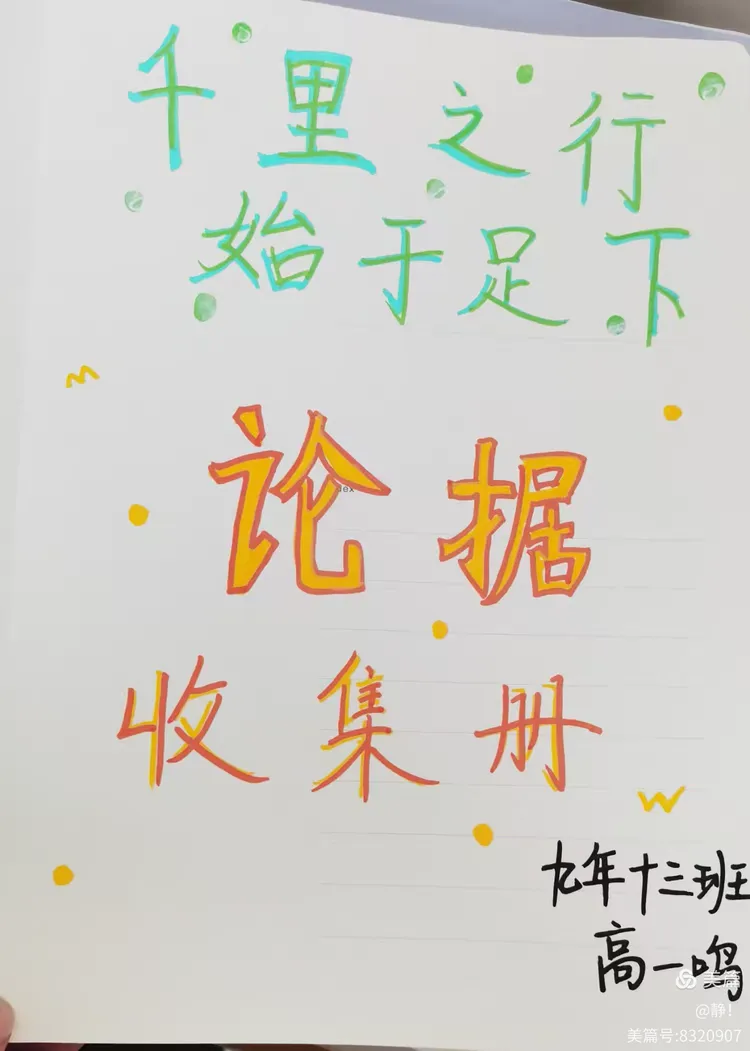 千里之行
始于足下
论据
收集册
九年十三班
高一鸣
美篇
@静！
美篇号:8320907